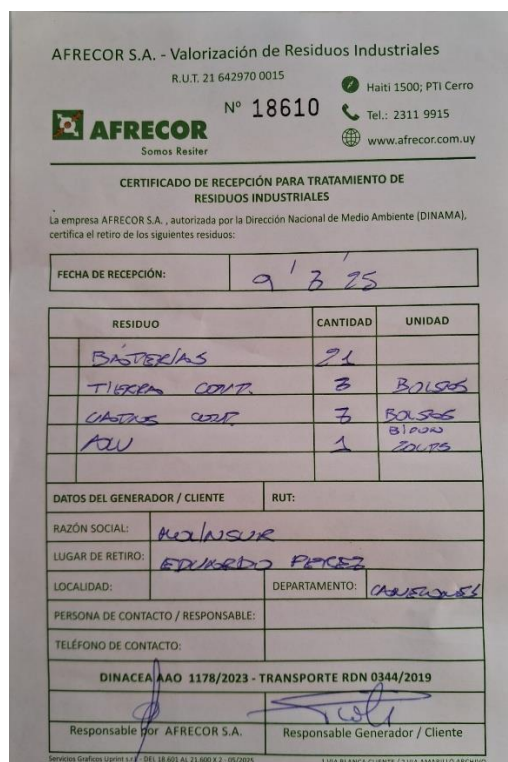 AFRECOR S.A. - Valorización de Residuos Industriales
R.U.T. 21 642970 0015
Haiti 1500; PTI Cerro
Nº 18610
Tel.: 2311 9915
AFRECOR
www.afrecor.com.uy
Somos Resiter
CERTIFICADO DE RECEPCIÓN PARA TRATAMIENTO DE
RESIDUOS INDUSTRIALES
La empresa AFRECOR S.A. , autorizada por la Dirección Nacional de Medio Ambiente (DINAMA),
certifica el retiro de los siguientes residuos:
FECHA DE RECEPCIÓN: 9 / 3 / 25
RESIDUO CANTIDAD UNIDAD
BATERÍAS 21
TIERRA CONT. 3 BOLSAS
CONT. 3 BOLSAS
1 BIDON
DATOS DEL GENERADOR / CLIENTE RUT:
RAZÓN SOCIAL:
LUGAR DE RETIRO: EDUARDO PEREZ
LOCALIDAD: DEPARTAMENTO: CANELONES
PERSONA DE CONTACTO / RESPONSABLE:
TELÉFONO DE CONTACTO:
DINACEA AAO 1178/2023 - TRANSPORTE RDN 0344/2019
Responsable por AFRECOR S.A. Responsable Generador / Cliente
Servicios Graficos Uprint s.r.l - DEL 18.601 AL 21.600 X 2 - 05/2025 1 VIA BLANCA CLIENTE / 2 VIA AMARILLO ARCHIVO